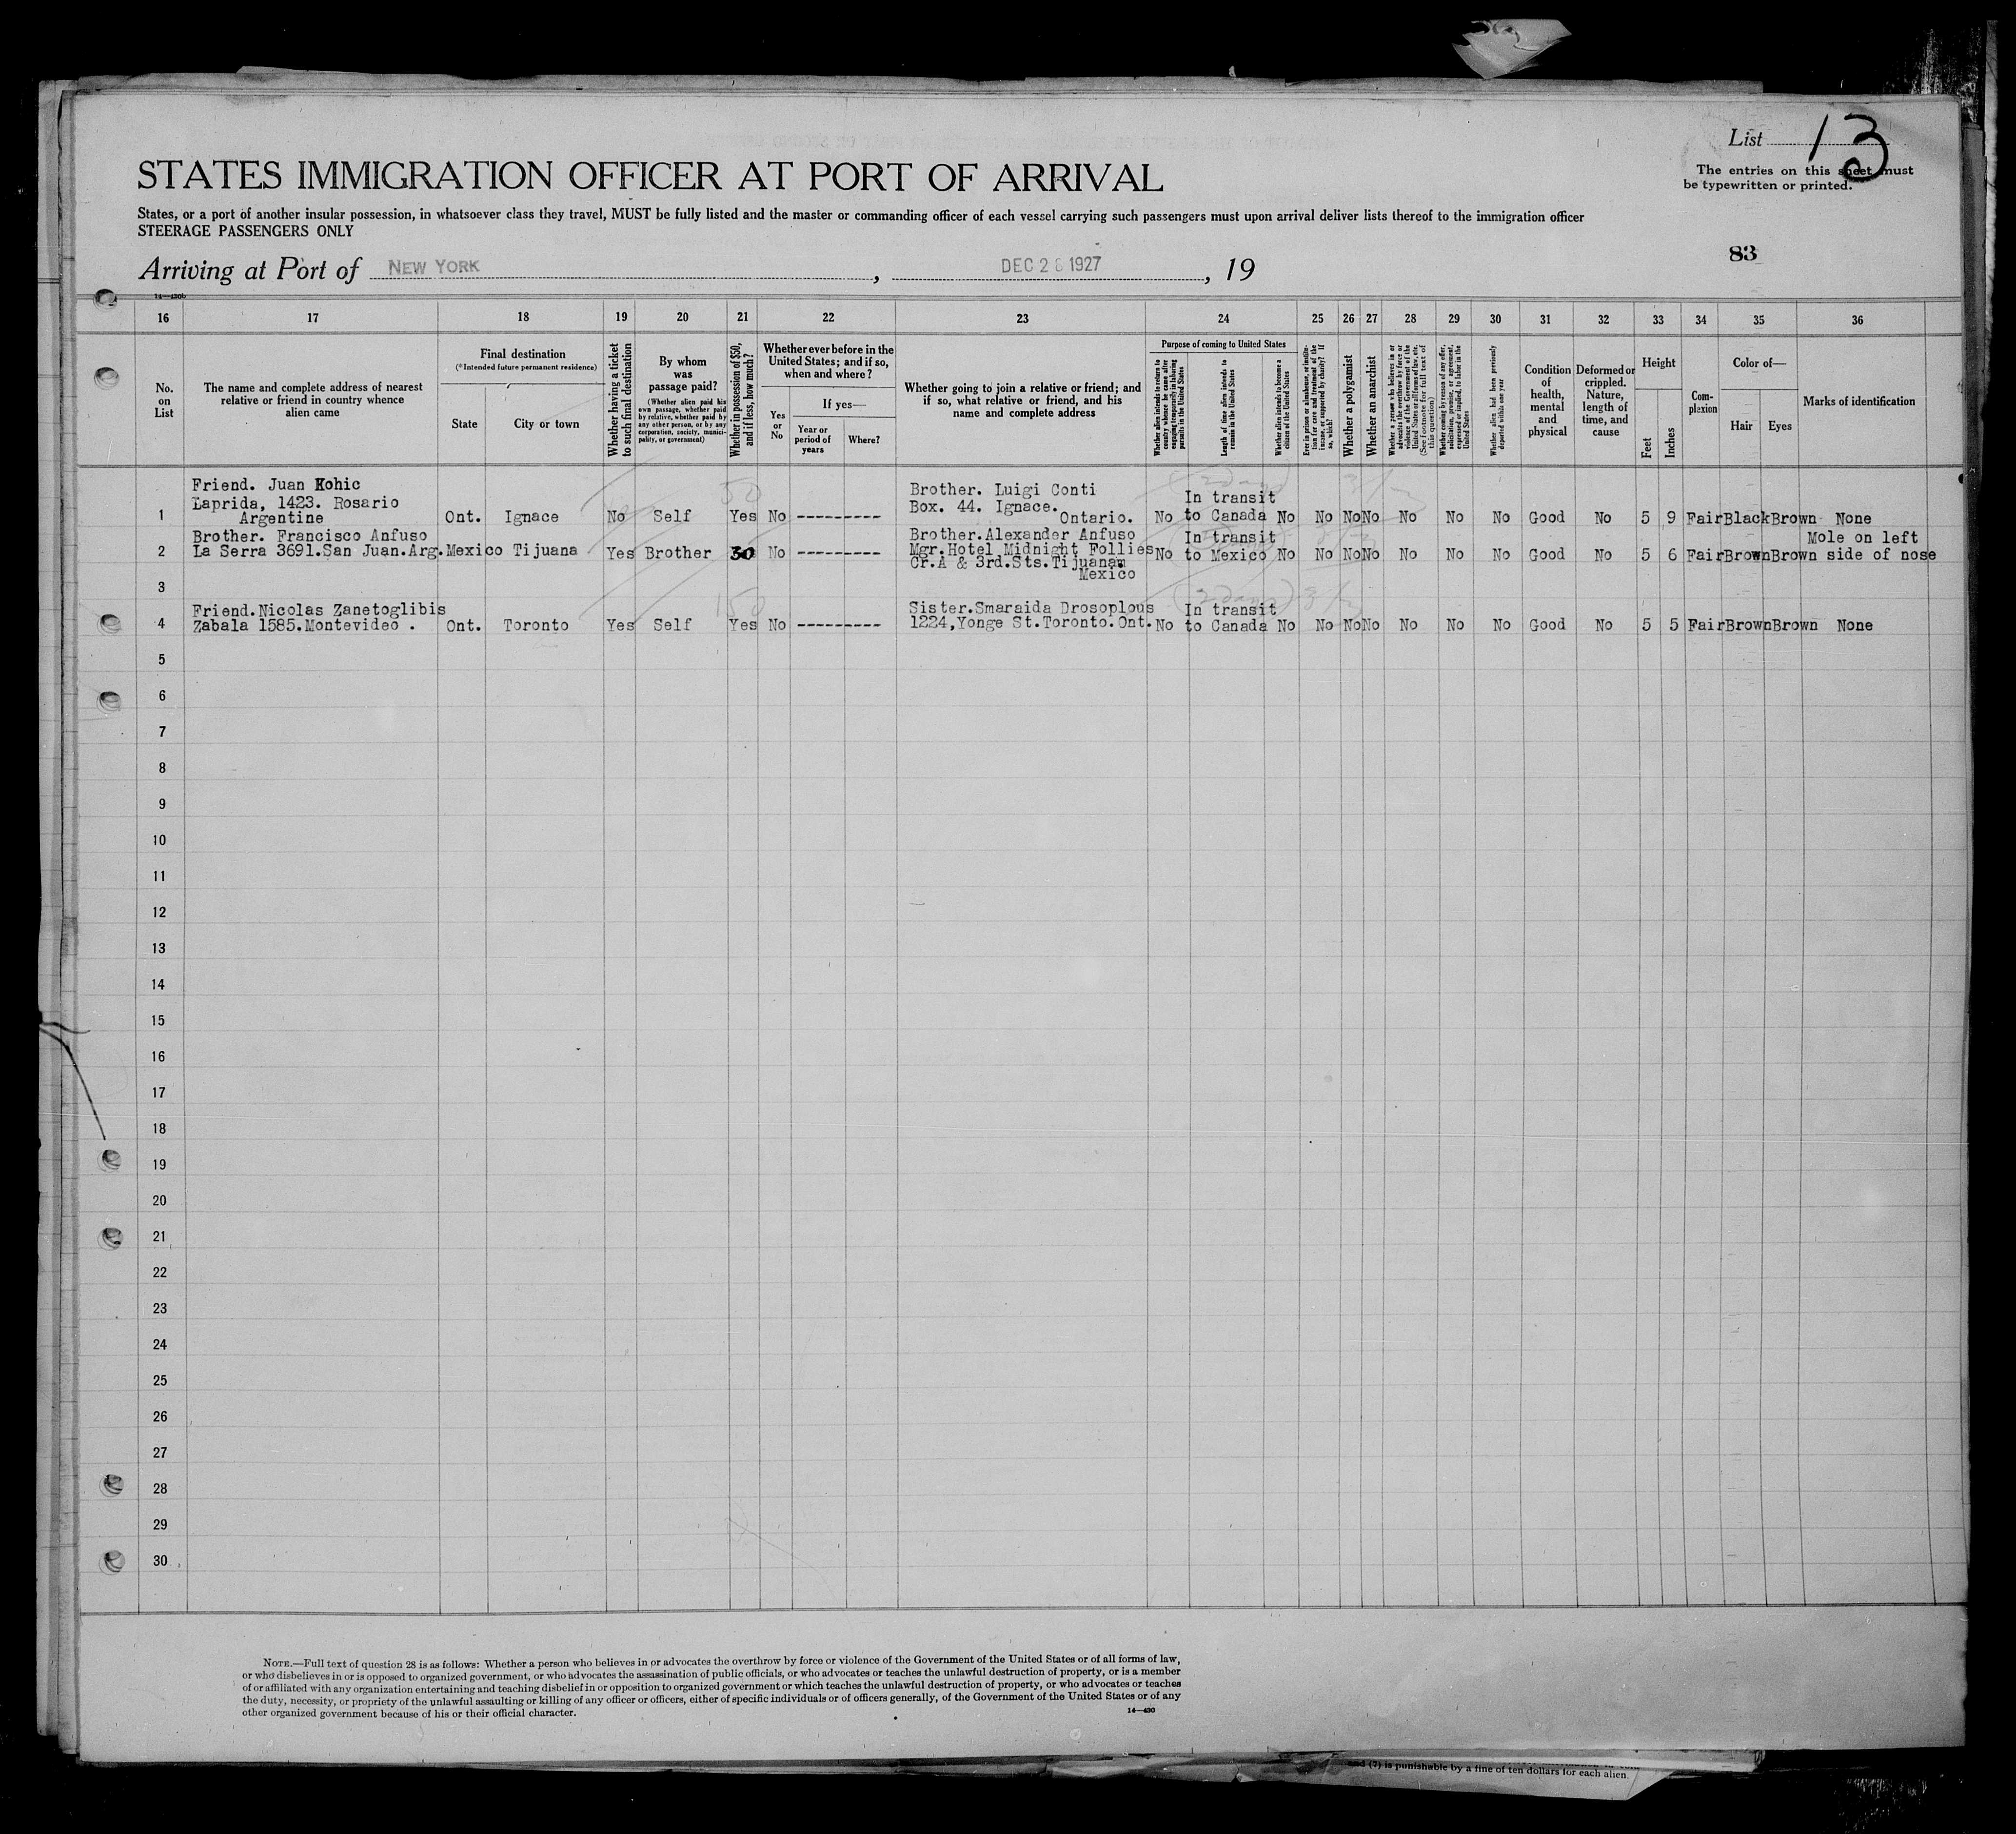 List 13
The entries on this sheet must
be typewritten or printed.
STATES IMMIGRATION OFFICER AT PORT OF ARRIVAL
States, or a port of another insular possession, in whatsoever class they travel, MUST be fully listed and the master or commanding officer of each vessel carrying such passengers must upon arrival deliver lists thereof to the immigration officer
STEERAGE PASSENGERS ONLY
83
Arriving at Port of NEW YORK, DEC 2 1927, 19
14—430b
16 17 18 19 20 21 22 23 24 25 26 27 28 29 30 31 32 33 34 35 36
No.
on
List
The name and complete address of nearest
relative or friend in country whence
alien came
Final destination
(*Intended future permanent residence)
State
City or town
Whether having a ticket
to such final destination
By whom
was
passage paid?
(Whether alien paid his
own passage, whether paid
by relative, whether paid by
any other person, or by any
corporation, society, munici-
pality, or government)
Whether in possession of $50,
and if less, how much?
Whether ever before in the
United States; and if so,
when and where?
Yes
or
No
If yes—
Year or
period of
years
Where?
Whether going to join a relative or friend; and
if so, what relative or friend, and his
name and complete address
Purpose of coming to United States
Whether alien intends to return to
country whence he came after
engaging temporarily in laboring
pursuits in the United States
Length of time alien intends to
remain in the United States
Whether alien intends to become a
citizen of the United States
Ever in prison or almshouse, or institu-
tion for care and treatment of the
insane, or supported by charity? If
so, which?
Whether a polygamist
Whether an anarchist
Whether a person who believes in or
advocates the overthrow by force or
violence of the Government of the
United States or all forms of law, etc.
(See footnote for full text of
this question)
Whether coming by reason of any offer,
solicitation, promise, or agreement,
expressed or implied, to labor in the
United States
Whether alien had been previously
deported within one year
Condition
of
health,
mental
and
physical
Deformed or
crippled.
Nature,
length of
time, and
cause
Height
Feet
Inches
Com-
plexion
Color of—
Hair
Eyes
Marks of identification
Friend. Juan Kohic
Laprida, 1423. Rosario
1 Argentine Ont. Ignace No Self 50 Yes No --------- Brother. Luigi Conti
Box. 44. Ignace.
Ontario. No In transit
to Canada No No No No No No No Good No 5 9 Fair Black Brown None
(2 days)
Brother. Francisco Anfuso
2 La Serra 3691.San Juan.Arg. Mexico Tijuana Yes Brother 30 No --------- Brother.Alexander Anfuso
Mgr.Hotel Midnight Follies
Cr.A & 3rd.Sts.Tijuana
Mexico No In transit
to Mexico No No No No No No No Good No 5 6 Fair Brown Brown Mole on left
side of nose
3
Friend.Nicolas Zanetoglibis
4 Zabala 1585.Montevideo . Ont. Toronto Yes Self 150 Yes No --------- Sister.Smaraida Drosoplous
1224,Yonge St.Toronto.Ont. No In transit
to Canada No No No No No No No Good No 5 5 Fair Brown Brown None
(2 days)
5
6
7
8
9
10
11
12
13
14
15
16
17
18
19
20
21
22
23
24
25
26
27
28
29
30
NOTE.—Full text of question 28 is as follows: Whether a person who believes in or advocates the overthrow by force or violence of the Government of the United States or of all forms of law,
or who disbelieves in or is opposed to organized government, or who advocates the assassination of public officials, or who advocates or teaches the unlawful destruction of property, or is a member
of or affiliated with any organization entertaining and teaching disbelief in or opposition to organized government or which teaches the unlawful destruction of property, or who advocates or teaches
the duty, necessity, or propriety of the unlawful assaulting or killing of any officer or officers, either of specific individuals or of officers generally, of the Government of the United States or of any
other organized government because of his or their official character.
14—430
(7) is punishable by a fine of ten dollars for each alien.